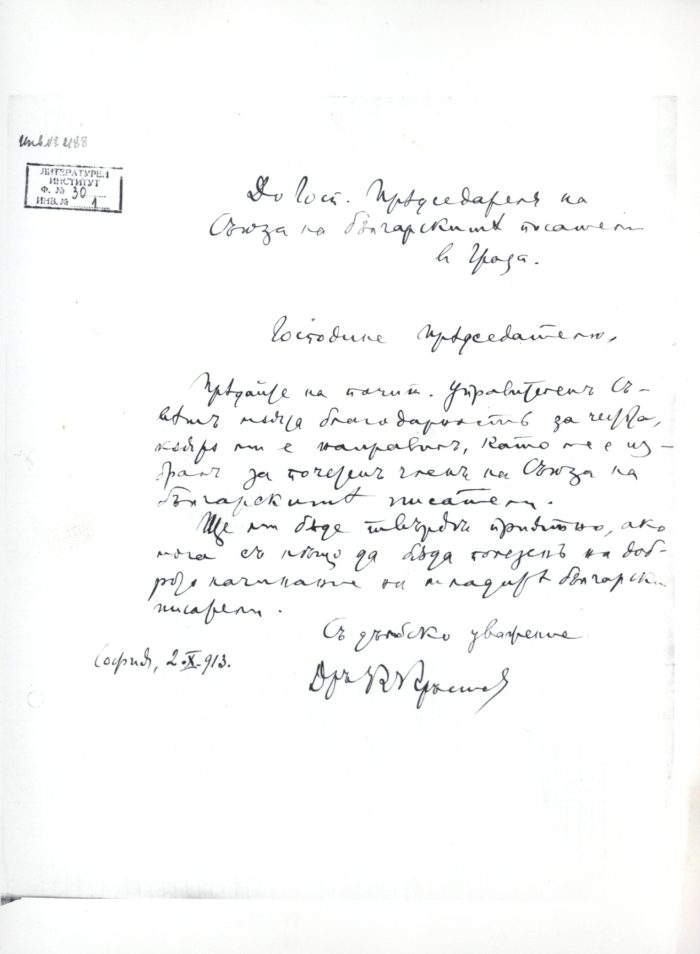 Инв. № 2188
ЛИТЕРАТУРЕН
ИНСТИТУТ
Ф. № 30
ИНВ. № 1
До Госп. Прѣдседателя на
Съюза на българскитѣ писатели
въ Града.
Господине Прѣдседателю,
Прѣдайте на почит. Управителенъ Съ-
вѣтъ моята благодарность за честьта,
която ми е направилъ, като ме е из-
бралъ за почетенъ членъ на Съюза на
българскитѣ писатели.
Ще ми бѫде твърдѣ приятно, ако
мога съ нѣщо да бѫда полезенъ на доб-
рото начинание на младитѣ български
писатели.
Съ дълбоко уважение
София, 2.X.913.
Д-ръ К. Кръстев